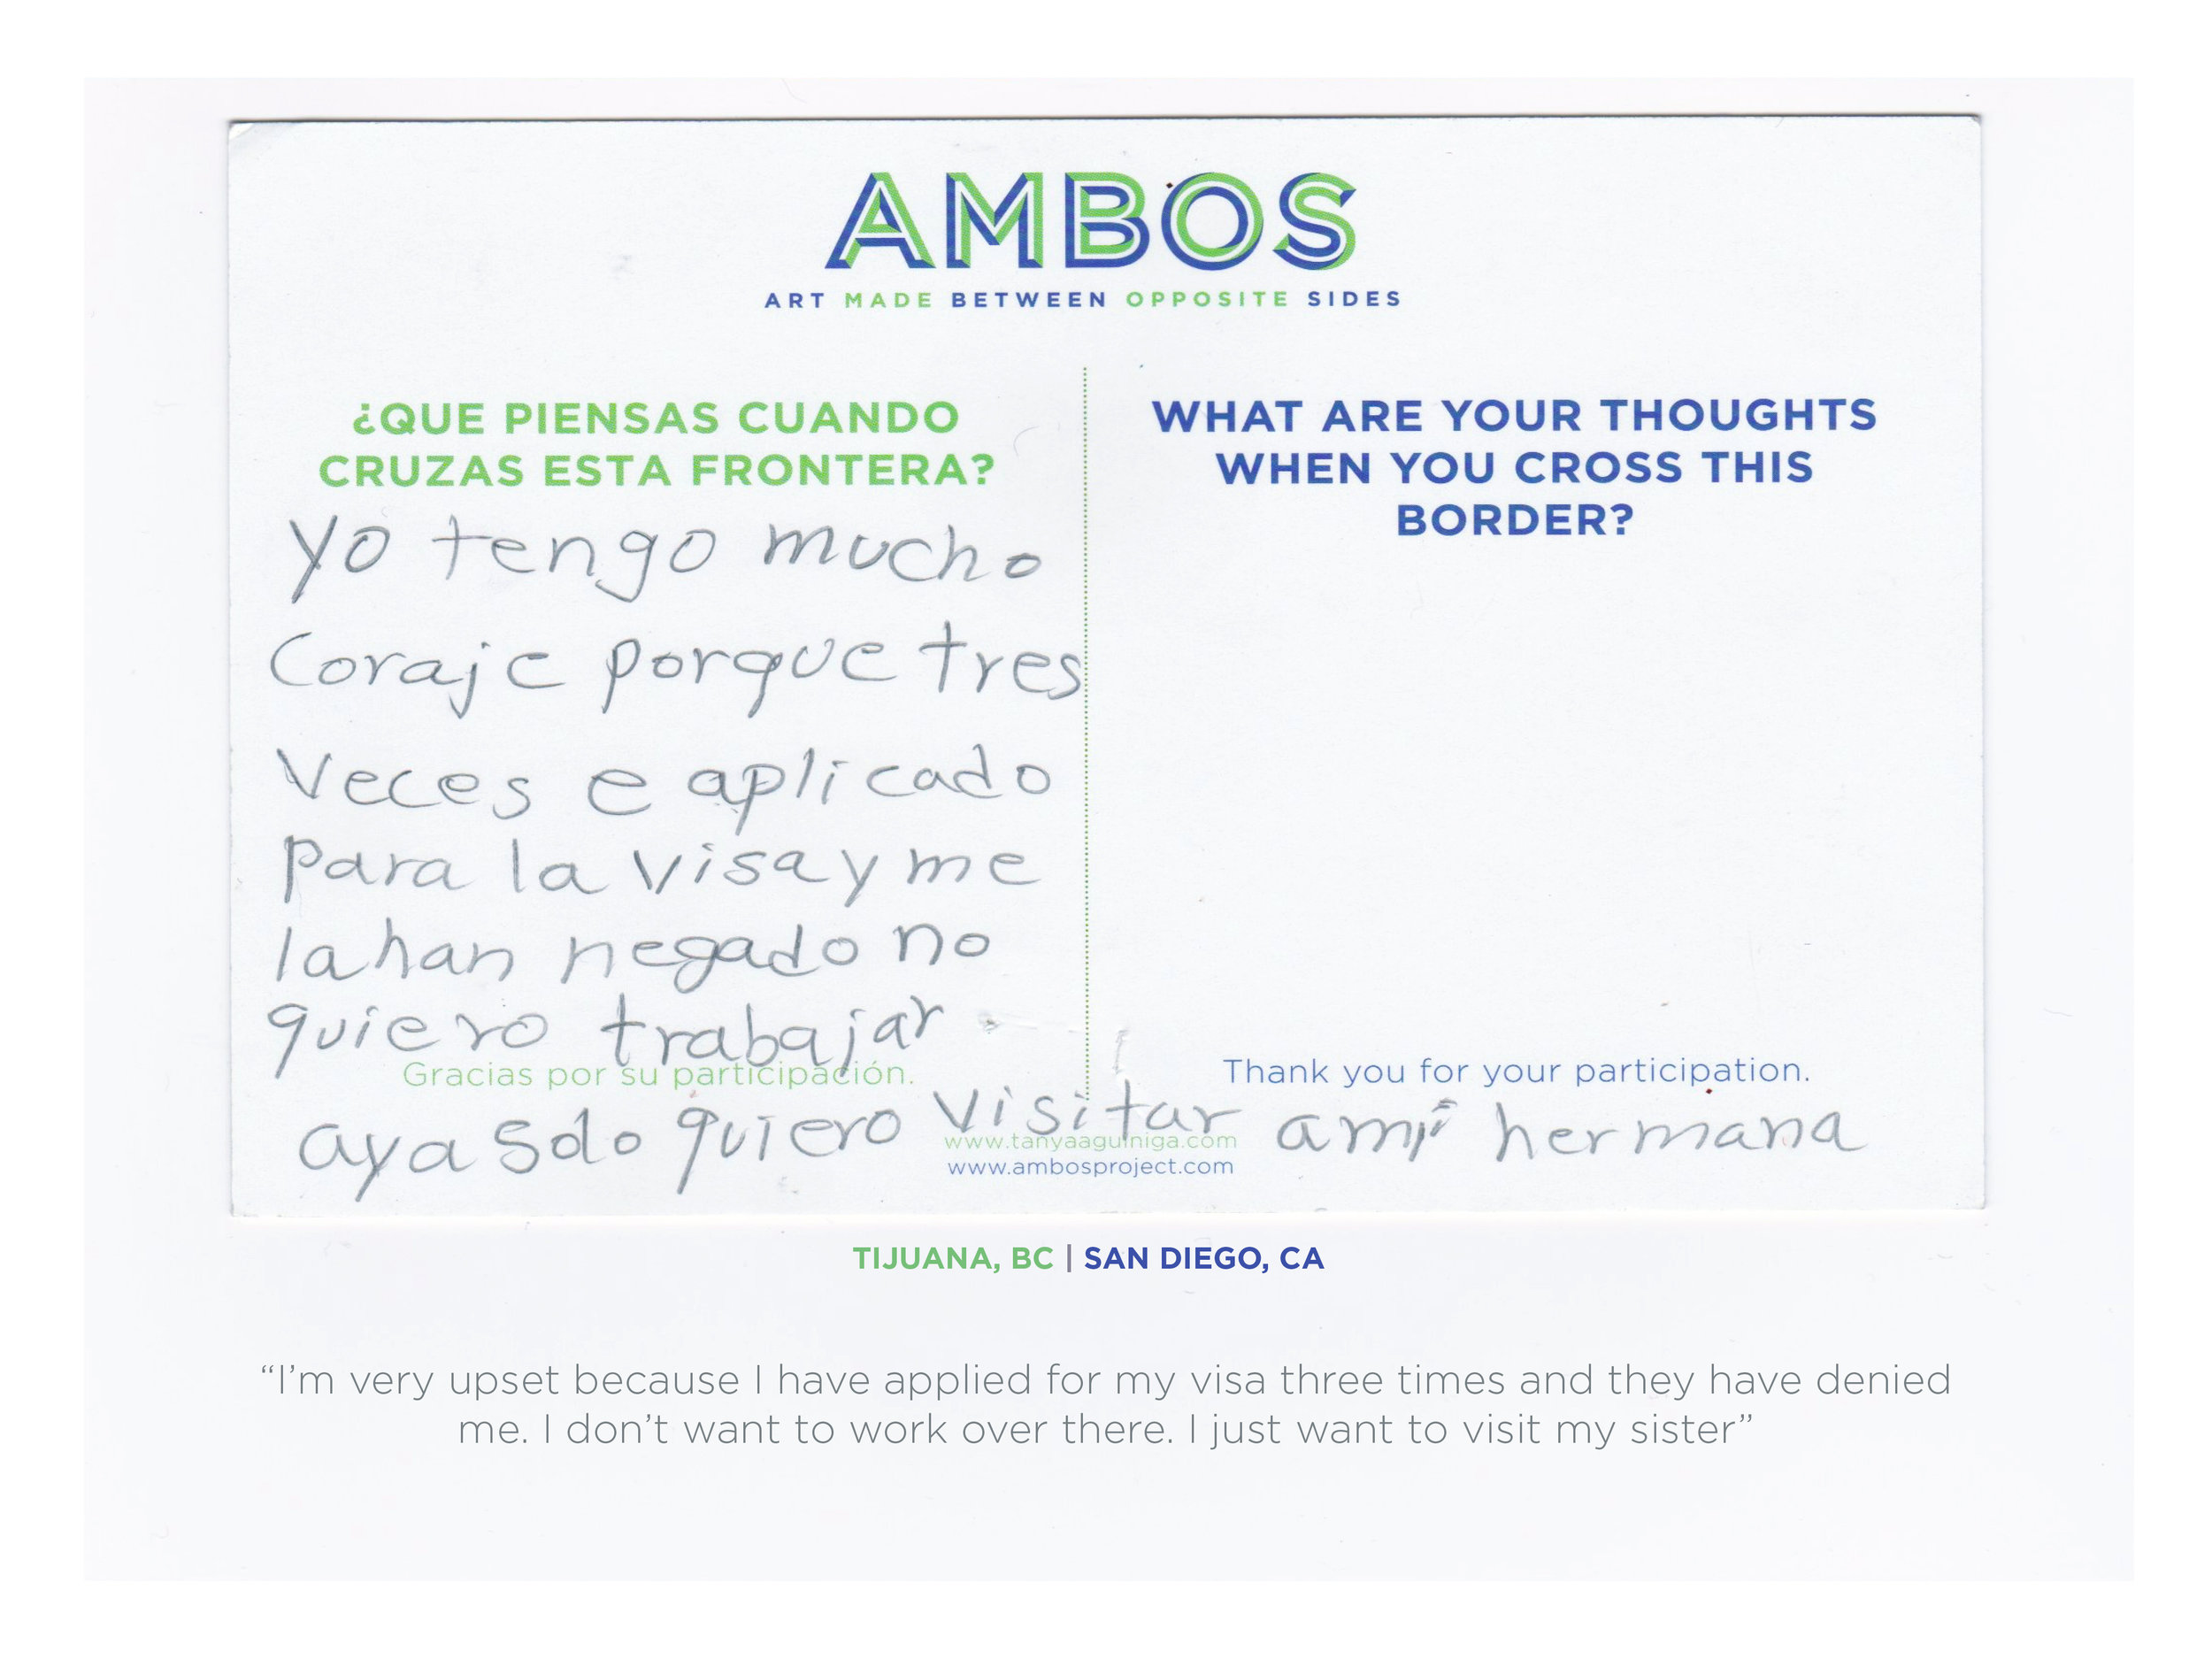 AMBOS
ART MADE BETWEEN OPPOSITE SIDES
¿QUE PIENSAS CUANDO
CRUZAS ESTA FRONTERA?
yo tengo mucho
coraje porque tres
veces e aplicado
para la visa y me
la han negado no
quiero trabajar
Gracias por su participación.
aya solo quiero visitar ami hermana
WHAT ARE YOUR THOUGHTS
WHEN YOU CROSS THIS
BORDER?
Thank you for your participation.
www.tanyaaguiniga.com
www.ambosproject.com
TIJUANA, BC | SAN DIEGO, CA
“I’m very upset because I have applied for my visa three times and they have denied
me. I don’t want to work over there. I just want to visit my sister”